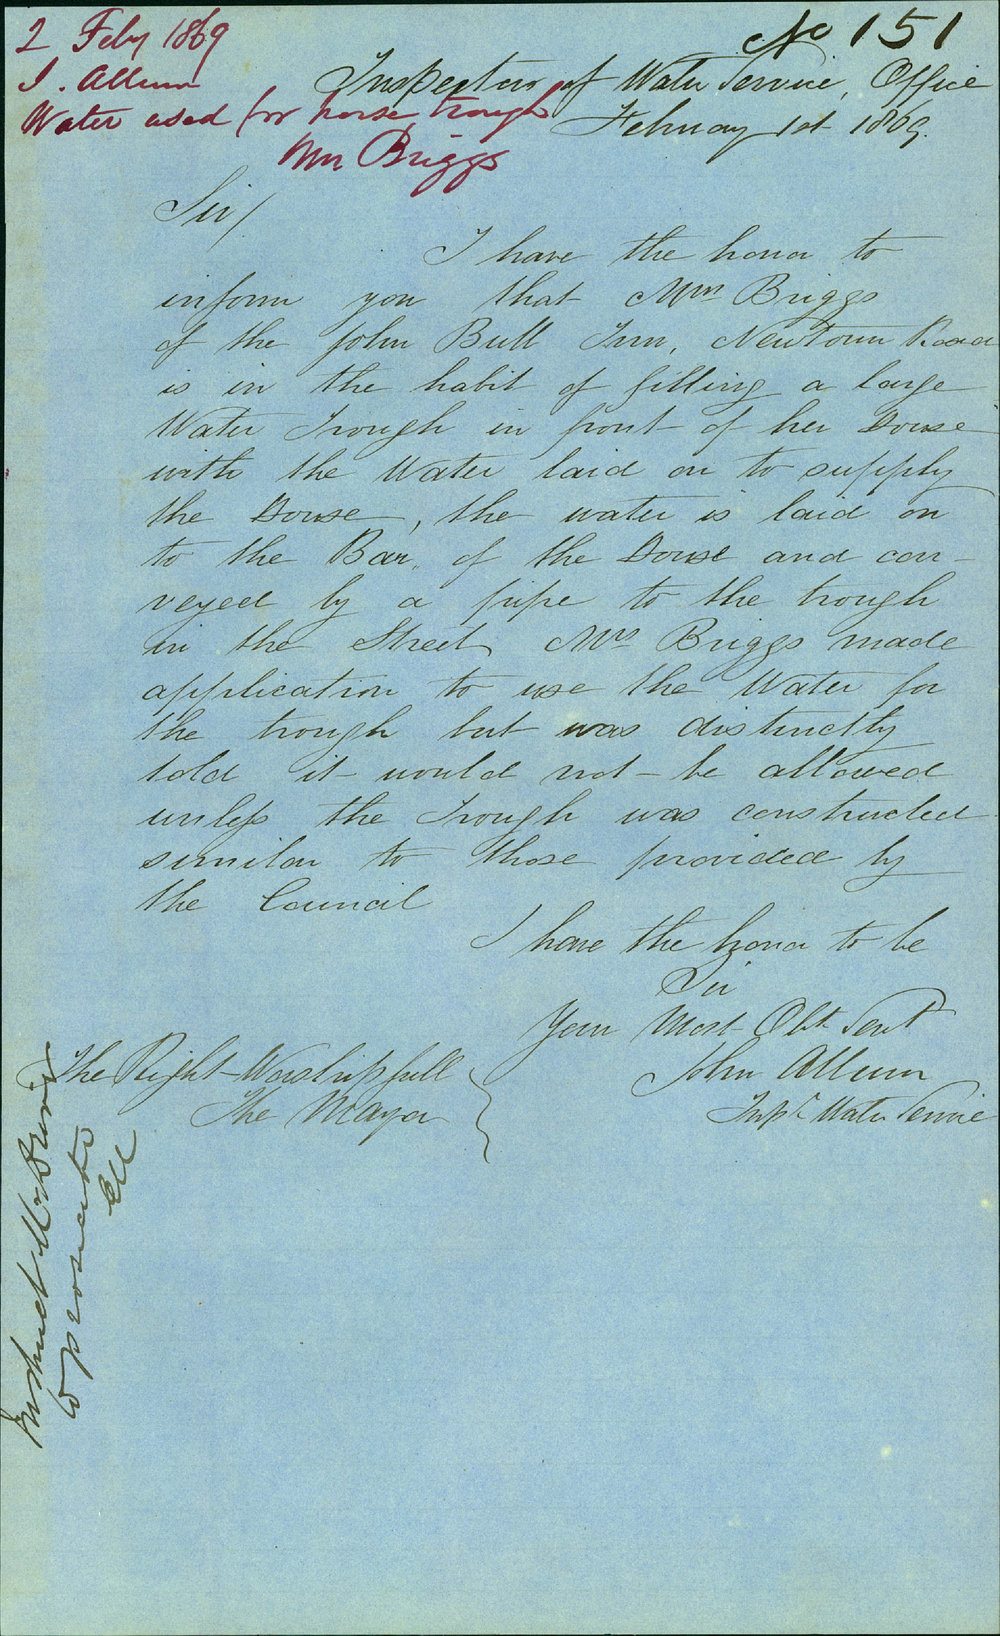 2 Feby 1869
J. Allum
Water used for horse trough
Mrs Briggs
No 151
Inspectors of Water Service, Office
February 1st 1869.
Sir/
I have the honor to
inform you that Mrs Briggs
of the John Bull Inn, Newtown Road
is in the habit of filling a large
Water Trough in front of her House
with the Water laid on to supply
the House, the water is laid on
to the Bar, of the House and con-
veyed by a pipe to the trough
in the Street, Mrs Briggs made
application to use the Water for
the trough but was distinctly
told it would not be allowed
unless the Trough was constructed
similar to those provided by
the Council
I have the honor to be
Sir
Your Most Obt Servt
John Allum
Inspr Water Service
The Right Worshipfull
The Mayor
Instruct Mr Driver
to prosecute